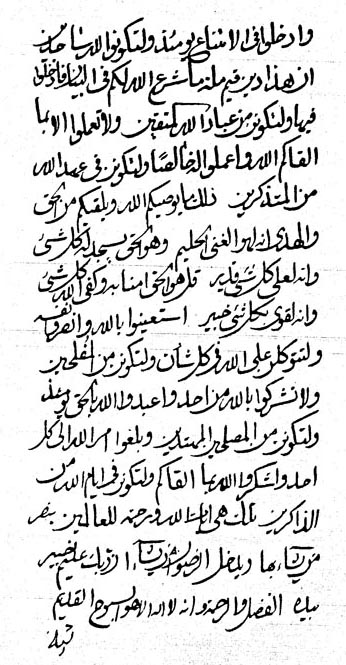 وادخلوا في الامتناع يومئذ ولتكونوا لله ساجدين
ان هذا دين قيم ملة ما شرع الله لكم في البيان فادخلوا
فيها ولتكونن من عباد الله لمتقين ولا تعملوا الا بما
القاكم الله واعملوا له خالصا ولتكونن في عهد الله
من المتذكرين ذلك ما يوصيكم الله ويلقيكم من الحق
والهدى انه لهو الغنى الحليم وهو الحق يسجد له كل شئ
وانه لعلى كل شئ قدير قل هو الحق امنا به وكفى الله كل شئ
وانه لقوى بكل شئ خبير استعينوا بالله وانصروا نفسه
ولتتوكلن على الله في كل شأن ولتكونن من المفلحين
ولا تشركوا بالله من احد واعبدوا الله بالحق يومئذ
ولتكونن من المصلحين المهتدين وبلغوا امر الله الى كل
احد واشكروا الله بما القاكم ولتكونن في ايام الله من
الذاكرين تلك هى ايات الله ورحمة للعالمين ينصر
من يشاء بها ويدخل الرضوان من يشاء ان ربك عليم خبير
بيده الفضل والرحمة وانه لا اله الا هو السبوح القديم